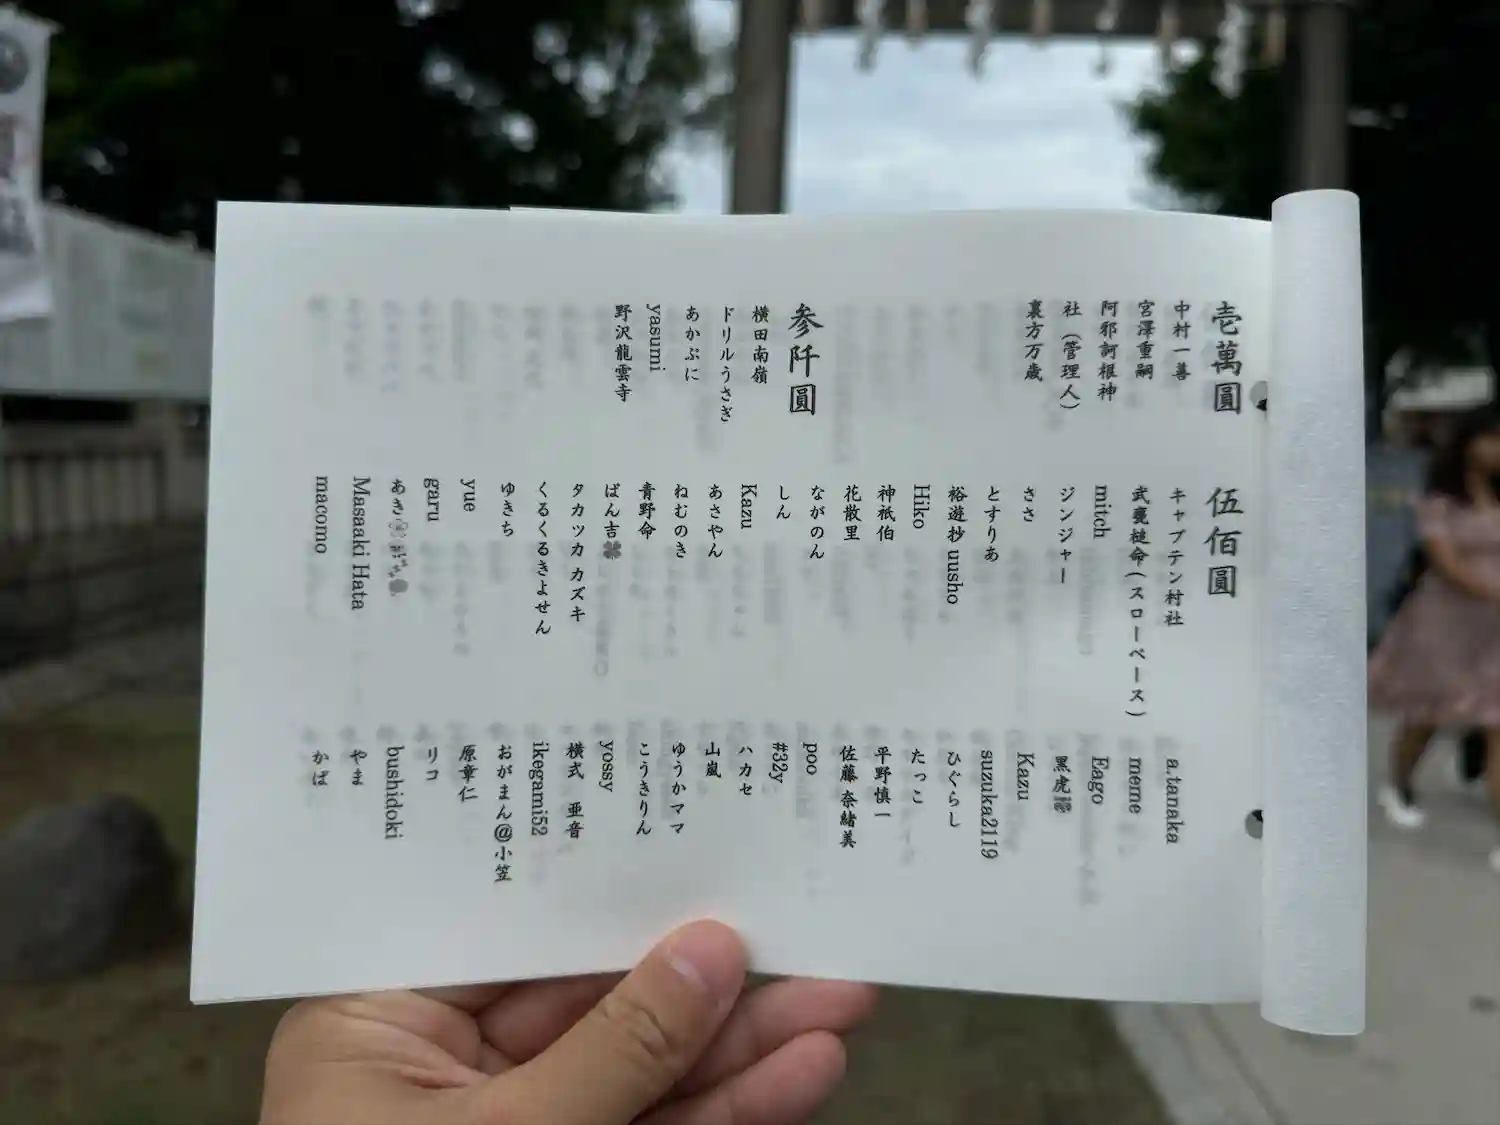 壱萬圓
中村一善
宮澤重嗣
阿邪訶根神
社（管理人）
裏方万歳
参阡圓
横田南嶺
ドリルうさぎ
あかぷに
yasumi
野沢龍雲寺
伍佰圓
キャプテン村社
武甕槌命(スローペース)
mitch
ジンジャー
ささ
とすりあ
裕遊抄 uusho
Hiko
神祇伯
花散里
ながのん
しん
Kazu
あさやん
ねむのき
青野命
ばん吉🍀
タカツカ カズキ
くるくるきよせん
ゆきち
yue
garu
あき
Masaaki Hata
macomo
a.tanaka
meme
Eago
黒虎
Kazu
suzuka2119
ひぐらし
たっこ
平野慎一
佐藤 奈緒美
poo
#32y
ハカセ
山嵐
ゆうかママ
こうきりん
yossy
横式 亜音
ikegami52
おがまん@小笠
原章仁
リコ
bushidoki
やま
かば